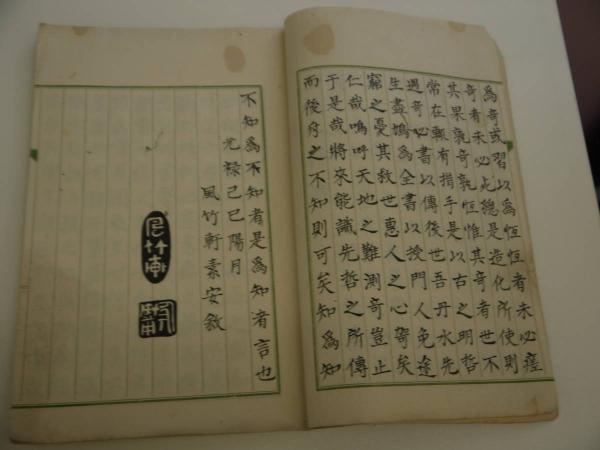 為奇或習以為恒恒者未必瘥
奇者未必總是造化所使則
其果孰奇孰恒惟其奇者世不
常在輙有指乎是以古之明哲
遇奇必書以傳後世吾丹水先
生盡為全書以授門人免途
窮之憂其救世惠人之心奇矣
仁哉嗚呼天地之難測奇豈止
于是哉將來能識先哲之所傳
而後之不知則可矣知為知
不知為不知者是為知者言也
元禄己巳陽月
風竹軒素安敘